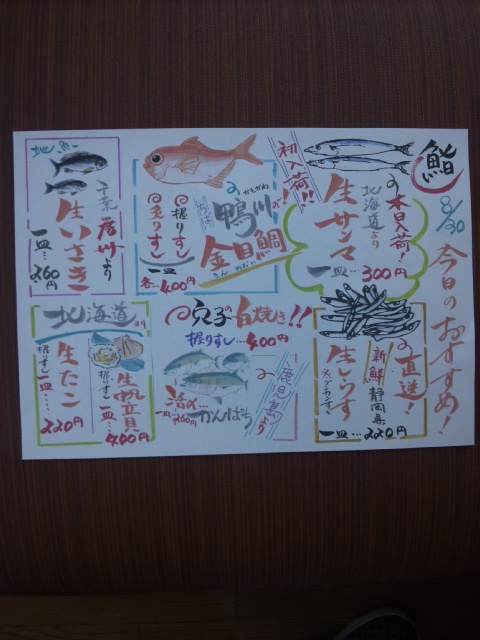 鮨
8/30
今日のおすすめ!
初入荷!!
本日入荷!
北海道より
生サンマ
一皿…300円
かもがわ
鴨川
金目鯛
きんめだい
握りすし
炙りすし
一皿
各…400円
地魚
千葉
房州より
生いさき
一皿…260円
直送!
新鮮
静岡県
生しらす
一皿…220円
穴子の白焼き!!
握りすし…400円
鹿児島より
活〆…
かんぱち
一皿…260円
北海道より
生帆立貝
握りすし
一皿…400円
生たこ
握りすし
一皿…220円